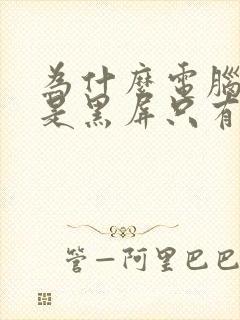 為什麼電腦
是黑屏只有
管—阿里巴巴